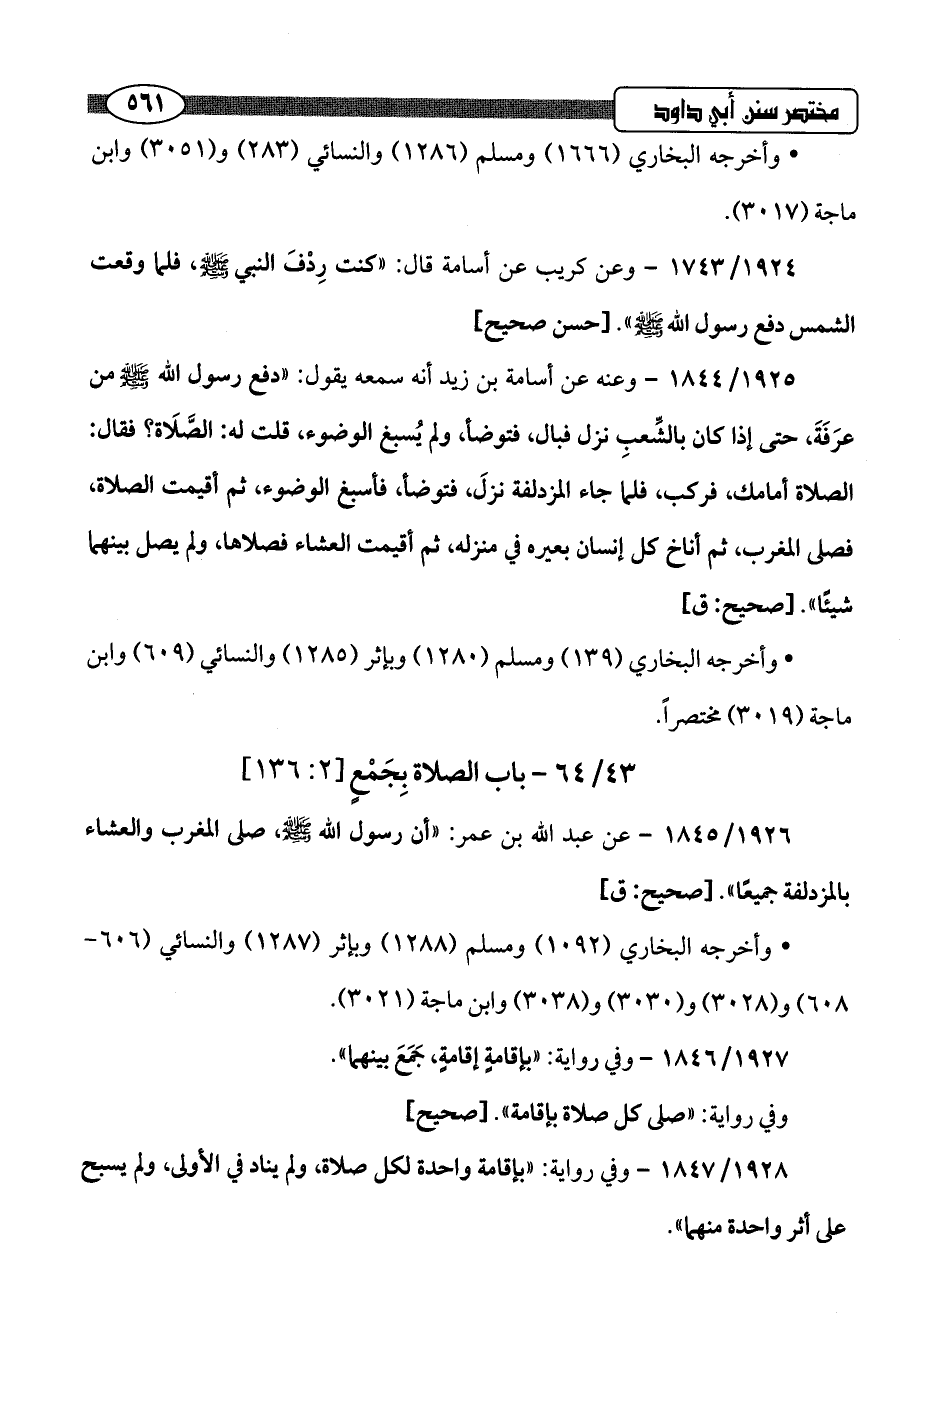 مختصر سنن أبي داود ٥٦١
• وأخرجه البخاري (١٦٦٦) ومسلم (١٢٨٦) والنسائي (٢٨٣) و(٣٠٥١) وابن
ماجة (٣٠١٧).
١٧٤٣/١٩٢٤ - وعن كريب عن أسامة قال: «كنت رِدْفَ النبي ﷺ، فلما وقعت
الشمس دفع رسول الله ﷺ». [حسن صحيح]
١٨٤٤/١٩٢٥ - وعنه عن أسامة بن زيد أنه سمعه يقول: «دفع رسول الله ﷺ من
عرَفَةَ، حتى إذا كان بالشِّعبِ نزل فبال، فتوضأ، ولم يُسبغ الوضوء، قلت له: الصَّلَاة؟ فقال:
الصلاة أمامك، فركب، فلما جاء المزدلفة نزلَ، فتوضأ، فأسبغ الوضوء، ثم أقيمت الصلاة،
فصلى المغرب، ثم أناخ كل إنسان بعيره في منزله، ثم أقيمت العشاء فصلاها، ولم يصل بينهما
شيئًا». [صحيح: ق]
• وأخرجه البخاري (١٣٩) ومسلم (١٢٨٠) وبإثر (١٢٨٥) والنسائي (٦٠٩) وابن
ماجة (٣٠١٩) مختصراً.
٦٤/٤٣ - باب الصلاة بِجَمْعٍ [٢: ١٣٦]
١٨٤٥/١٩٢٦ - عن عبد الله بن عمر: «أن رسول الله ﷺ، صلى المغرب والعشاء
بالمزدلفة جميعًا». [صحيح: ق]
• وأخرجه البخاري (١٠٩٢) ومسلم (١٢٨٨) وبإثر (١٢٨٧) والنسائي (٦٠٦-
٦٠٨) و(٣٠٢٨) و(٣٠٣٠) و(٣٠٣٨) وابن ماجة (٣٠٢١).
١٨٤٦/١٩٢٧ - وفي رواية: «بإقامةٍ إقامةٍ، جَمَعَ بينهما».
وفي رواية: «صلى كل صلاة بإقامة». [صحيح]
١٨٤٧/١٩٢٨ - وفي رواية: «بإقامة واحدة لكل صلاة، ولم يناد في الأولى، ولم يسبح
على أثر واحدة منهما».